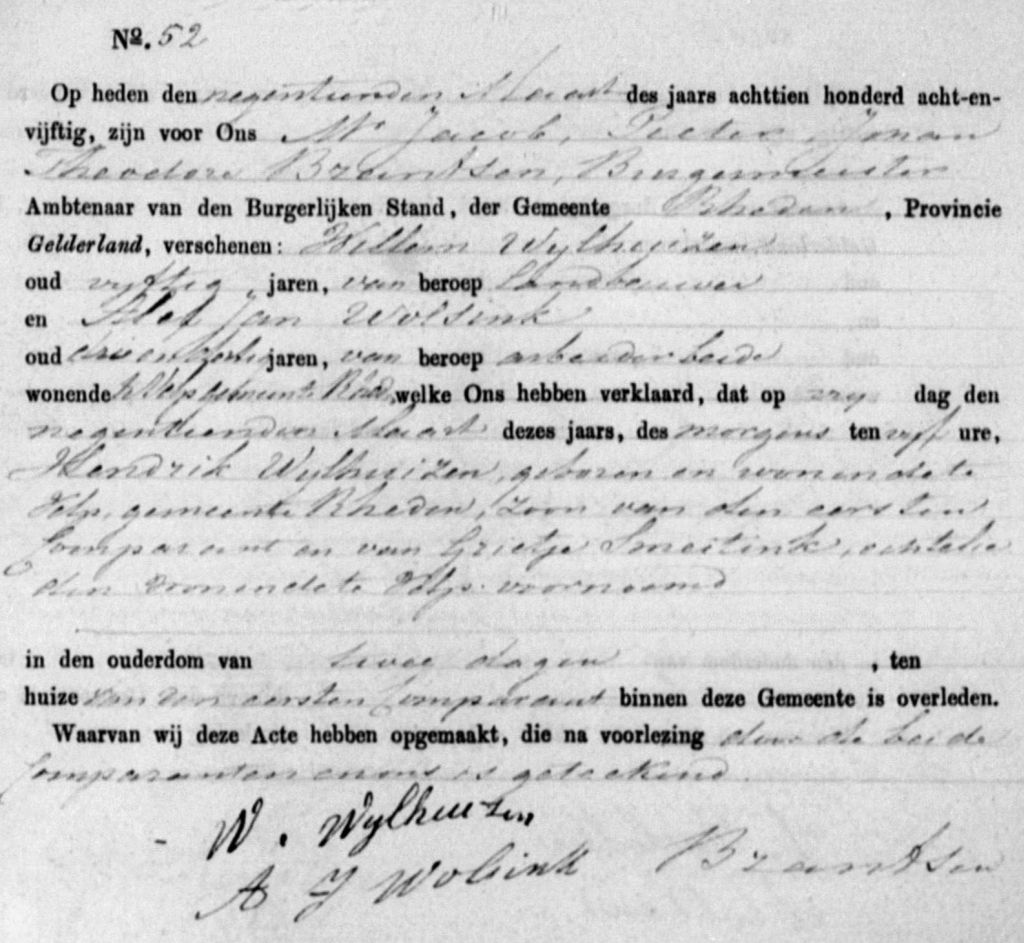 Nº. 52
Op heden den negentienden Maart des jaars achttien honderd acht-en-
vijftig, zijn voor Ons Mr Jacob, Pieter, Johan
Theodore Brantsen, Burgemeester
Ambtenaar van den Burgerlijken Stand, der Gemeente Rheden, Provincie
Gelderland, verschenen: Willem Wylhuizen
oud vyftig jaren, van beroep Landbouwer
en Alef Jan Wolsink
oud drie en jaren, van beroep arbeider beide
wonende te Velp gemeente welke Ons hebben verklaard, dat op vry dag den
negentienden Maart dezes jaars, des morgens ten vyf ure,
Hendrik Wylhuizen, geboren en wonende te
Velp, gemeente Rheden, zoon van den eersten
Comparant en van Grietje Smeitink, echtelie
den wonende te Velp voornoemd
in den ouderdom van twee dagen, ten
huize van den eersten Comparant binnen deze Gemeente is overleden.
Waarvan wij deze Acte hebben opgemaakt, die na voorlezing door de beide
Comparanten en ons is geteekend.
W. Wylhuizen
A J Wolsink Brantsen